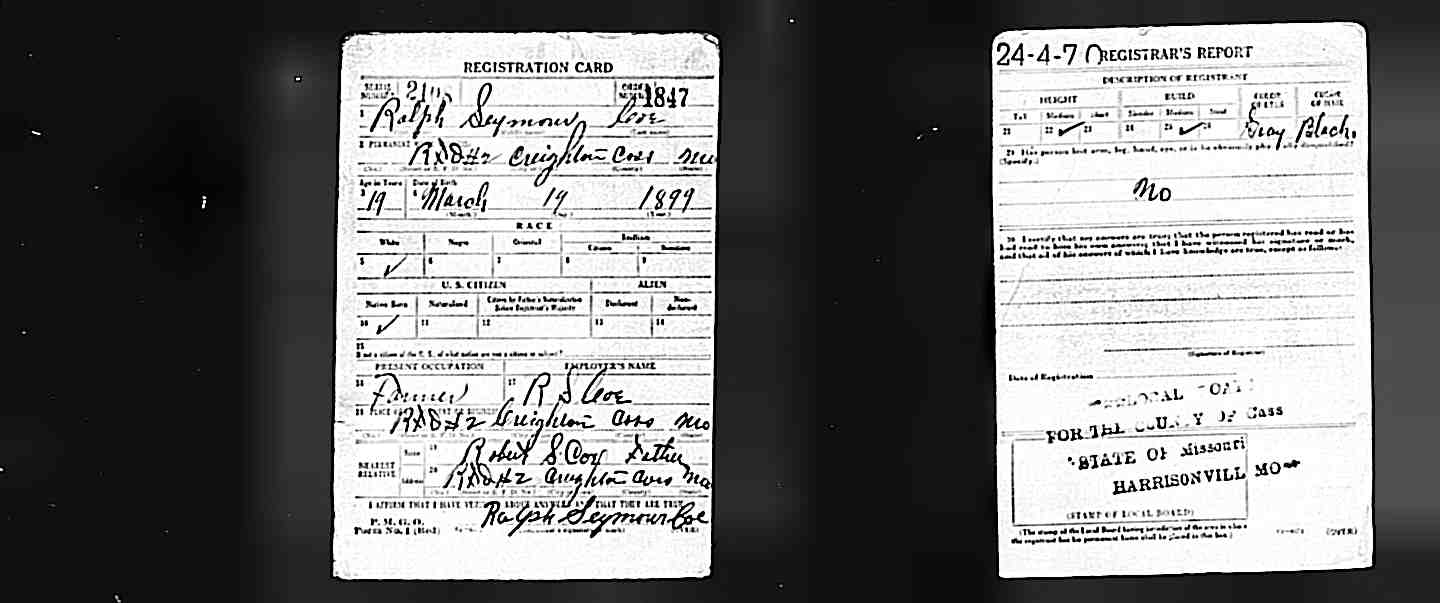 REGISTRATION CARD
SERIAL NUMBER ORDER NUMBER 1847
1 Ralph Seymour Coe
(Last name)
2 PERMANENT
RFD#2 Creighton Cass Mo
Age in Years Date of Birth
3 19 4 March 19 1899
(Month.) (Day.) (Year.)
RACE
White Negro Oriental Indian
Citizen Noncitizen
5 ✓ 6 7 8 9
U. S. CITIZEN ALIEN
Native Born Naturalized Citizen by Father's Naturalization Before Registrant's Majority Declarant Non-declarant
10 ✓ 11 12 13 14
15
If not a citizen of the U. S., of what nation are you a citizen or subject?
PRESENT OCCUPATION EMPLOYER'S NAME
16 Farmer 17 R S Coe
18 PLACE OF
RFD#2 Creighton Cass Mo
(No.) (County) (State)
NEAREST RELATIVE Name 19 Robert S Coe Father
Address 20 RFD#2 Creighton Cass Mo
I AFFIRM THAT I HAVE VERIFIED ABOVE ANSWERS AND THAT THEY ARE TRUE
P. M. G. O.
Form No. 1 (Red) Ralph Seymour Coe
(OVER)
24-4-7 C REGISTRAR'S REPORT
DESCRIPTION OF REGISTRANT
HEIGHT BUILD COLOR OF EYES COLOR OF HAIR
Tall Medium Short Slender Medium Stout
21 22 ✓ 23 24 25 ✓ 26 Gray Black.
29 Has person lost arm, leg, hand, eye, or is he obviously physically disqualified?
(Specify.)
No
30 I certify that my answers are true; that the person registered has read or has
had read to him his own answers; that I have witnessed his signature or mark,
and that all of his answers of which I have knowledge are true, except as follows:
(Signature of Registrar)
Date of Registration
LOCAL BOARD
FOR THE COUNTY OF Cass
STATE OF Missouri
HARRISONVILL MO
(STAMP OF LOCAL BOARD)
(The stamp of the Local Board having jurisdiction of the area in which
the registrant has his permanent home shall be placed in this box.)
(OVER)